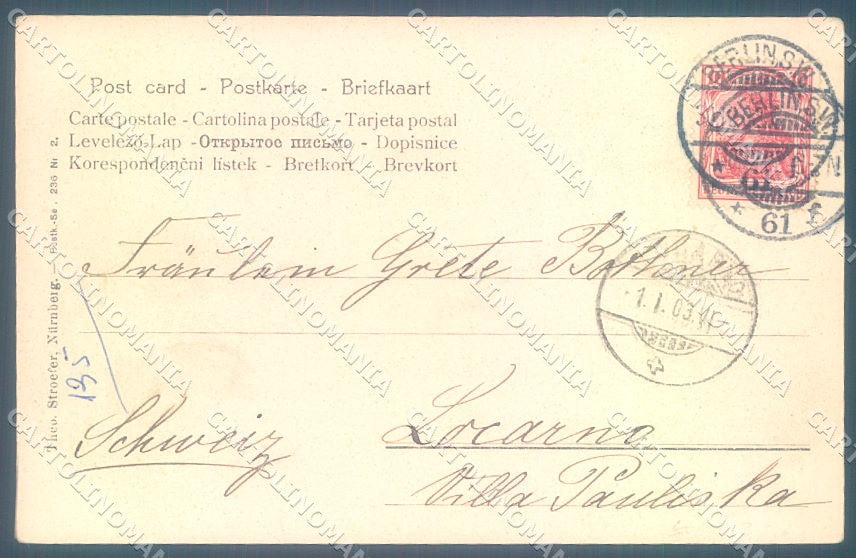 Post card - Postkarte - Briefkaart
Carte postale - Cartolina postale - Tarjeta postal
Levelező-Lap - Открытое письмо - Dopisnice
Korespondenční lístek - Brefkort - Brevkort
BERLIN.S.W.
BERLIN.S.W.
61
61 f
Fräulein Grete
1.I.03
Locarno
Villa Pauliska
Schweiz
135
Theo. Stroefer, Nürnberg. — Postk.-Se. 236 Nr 2.
CARTOLINOMANIA